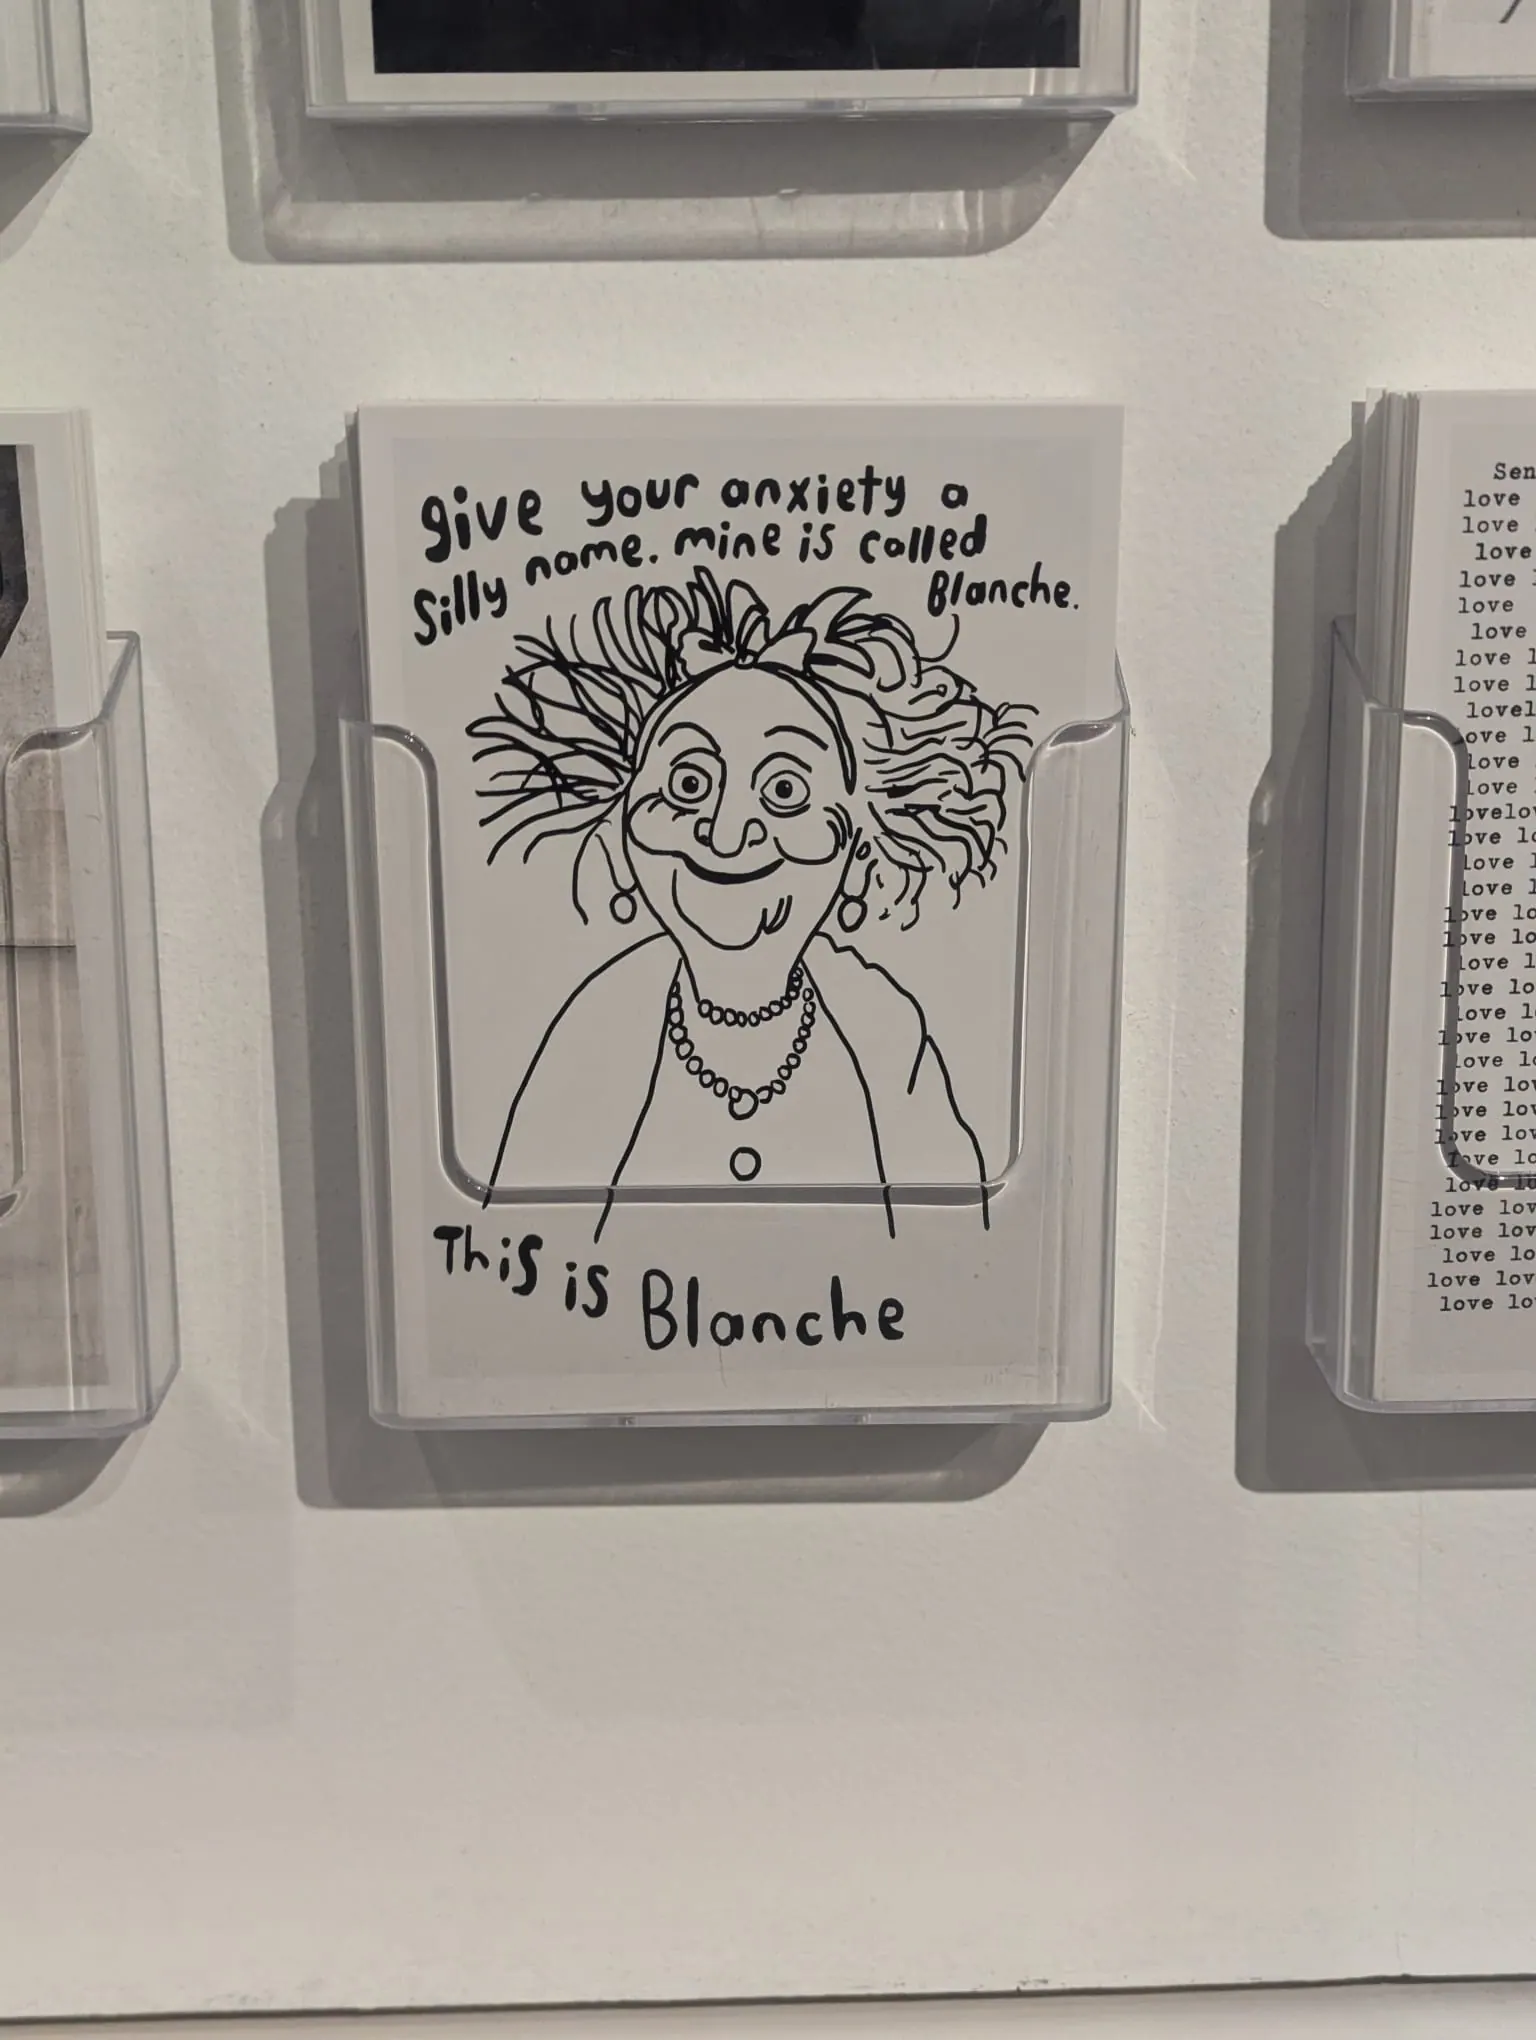 give your anxiety a
silly name. mine is called
Blanche.
This is Blanche
Sen
love
love
love
love l
love
love
love l
love l
lovel
love l
love
love
lovelov
love lo
love l
love l
love lo
love lo
love l
love lo
love l
love lo
love lo
love lov
love lov
love lov
love lo
love lo
love lov
love lov
love lo
love lov
love lov